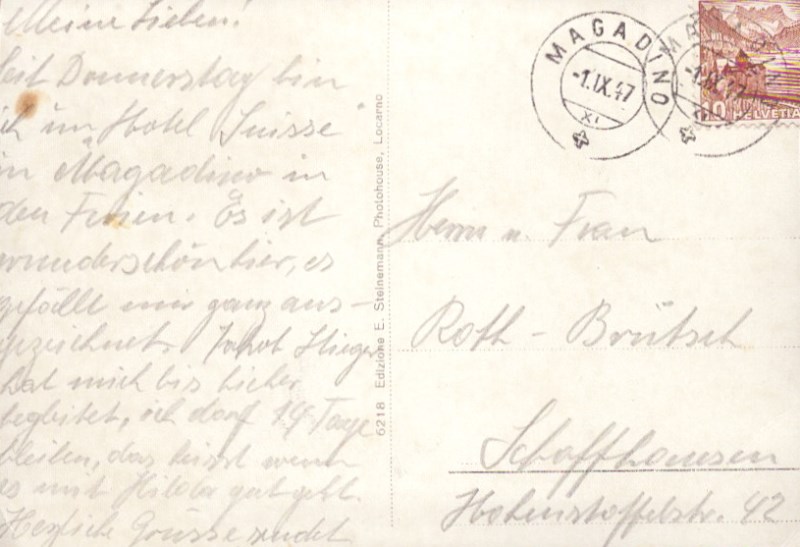 Meine Lieben!
Seit Donnerstag bin
ich im Hotel "Suisse"
in Magadino in
den Ferien. Es ist
wunderschön hier, es
gefällt mir ganz aus-
gezeichnet. Jakob
hat mich bis hieher
begleitet, ich darf 14 Tage
bleiben, das heisst wenn
es mit Hilda gut geht.
Herzliche Grüsse sendet
6218 Edizione E. Steinemann, Photohouse, Locarno
MAGADINO
-1.IX.47
XI
MAGADINO
-1.IX.47
10 HELVETIA
Herrn u. Frau
Roth - Brütsch
Schaffhausen
Hohenstoffelstr. 42